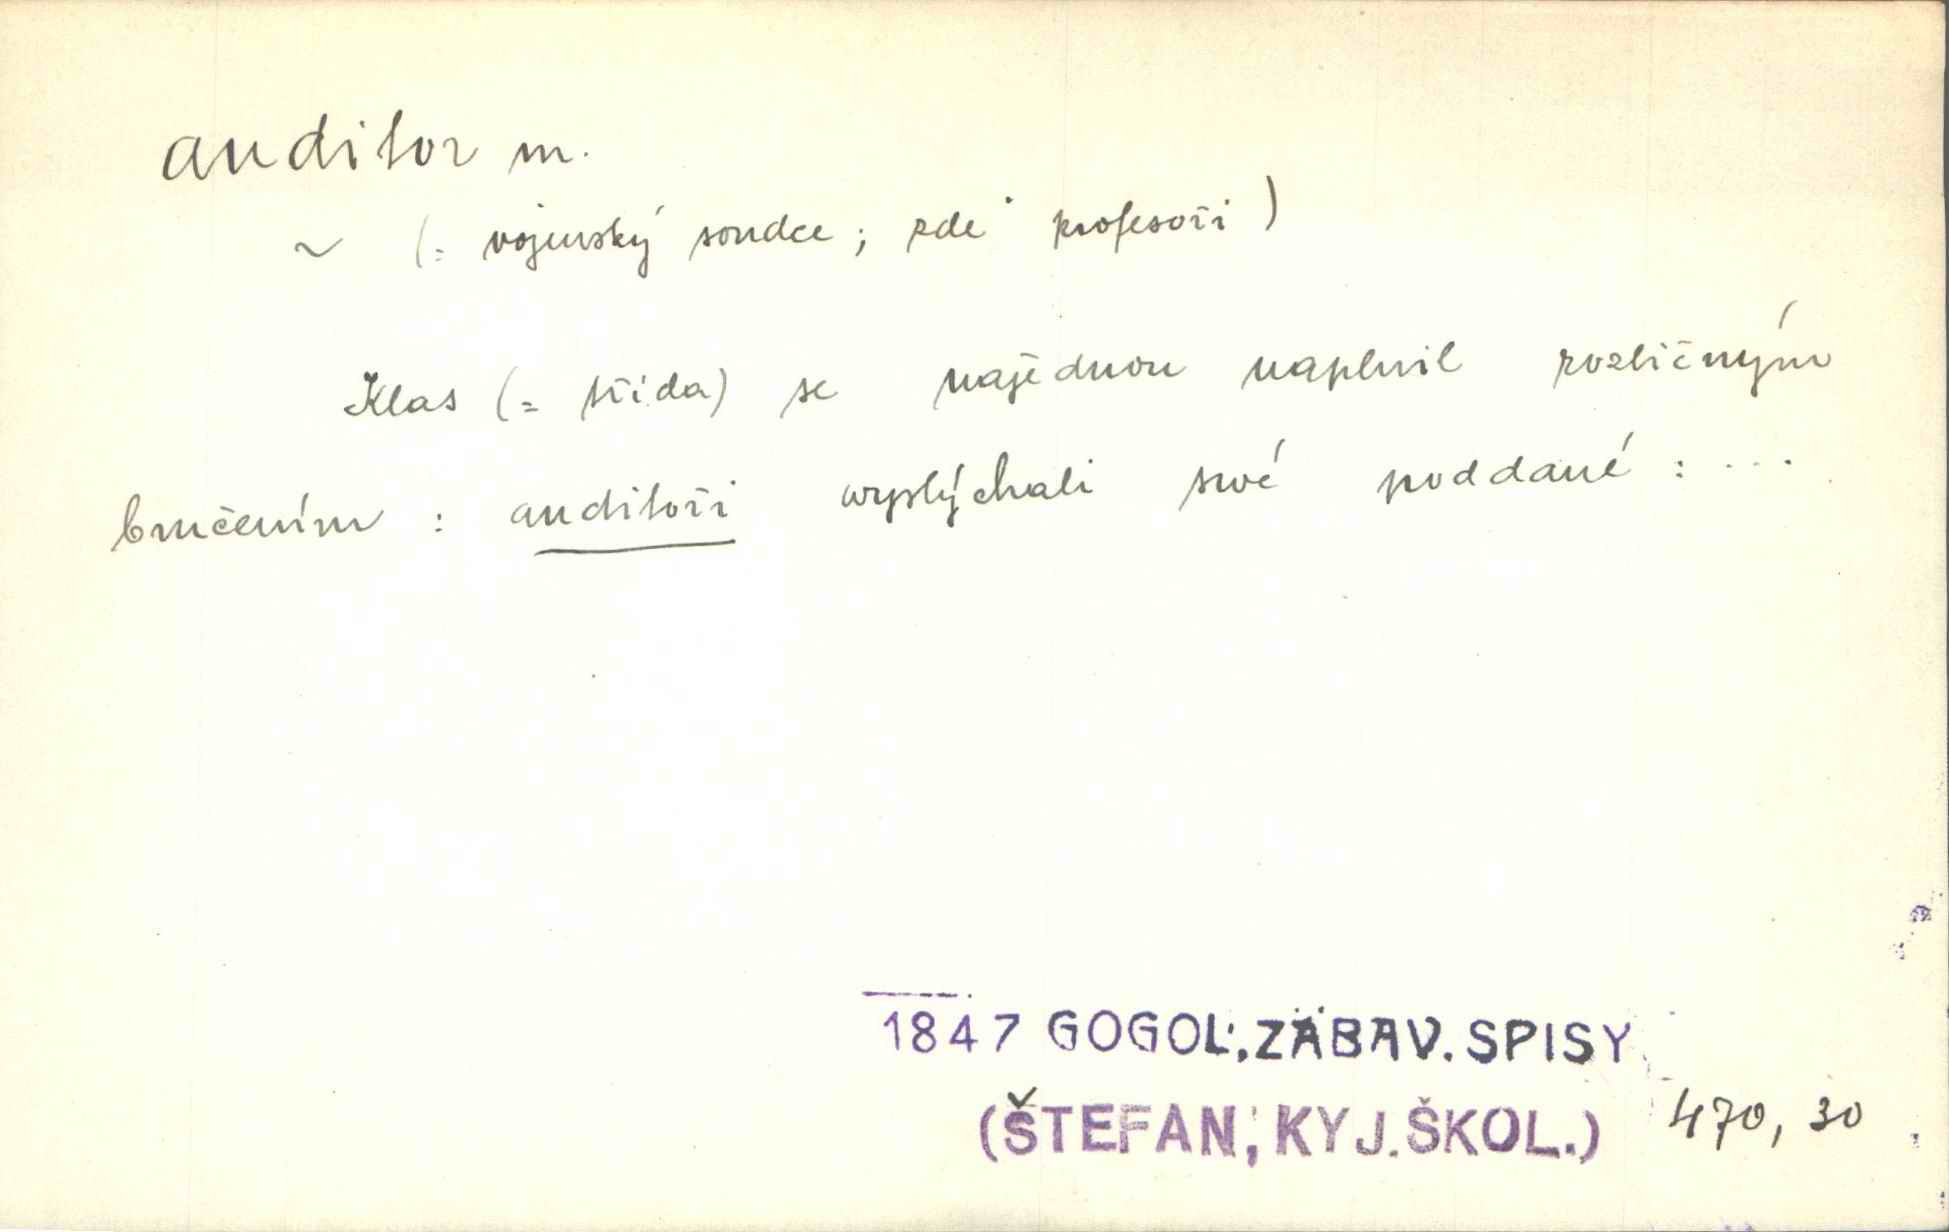 auditor m.
~ (= vojenský soudce; zde profesoři)
Klas (= třída) se najednou naplnil rozličným
bručením : auditoři wyslýchali své poddané : ...
1847 GOGOL', ZÁBAV. SPISY
(ŠTEFAN, KYJ. ŠKOL.) 470, 30